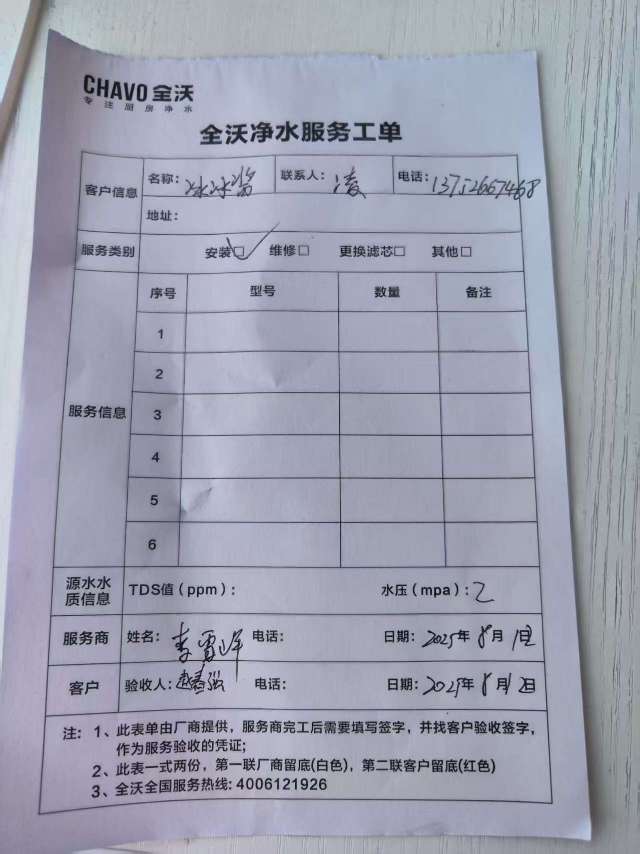 CHAVO 全沃
专注厨房净水
全沃净水服务工单
客户信息 名称: 联系人: 凌 电话: 13752667468
地址:
服务类别 安装□ ✓ 维修□ 更换滤芯□ 其他□
服务信息 序号 型号 数量 备注
1
2
3
4
5
6
源水水质信息 TDS值（ppm）: 水压（mpa）: 2
服务商 姓名: 李雷峰 电话: 日期: 2025年8月12日
客户 验收人: 赵春强 电话: 日期: 2025年8月12日
注: 1、此表单由厂商提供，服务商完工后需要填写签字，并找客户验收签字，
作为服务验收的凭证;
2、此表一式两份，第一联厂商留底(白色)，第二联客户留底(红色)
3、全沃全国服务热线: 4006121926